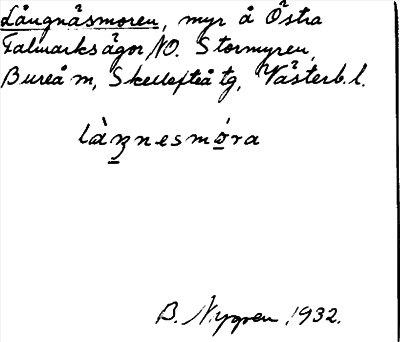 Långnäsmoren, myr å Östra
Falmarks ägor NO. Stormyren,
Bureå m, Skellefteå tg, Västerb. l.
làŋnesmóra
B. Nygren 1932.